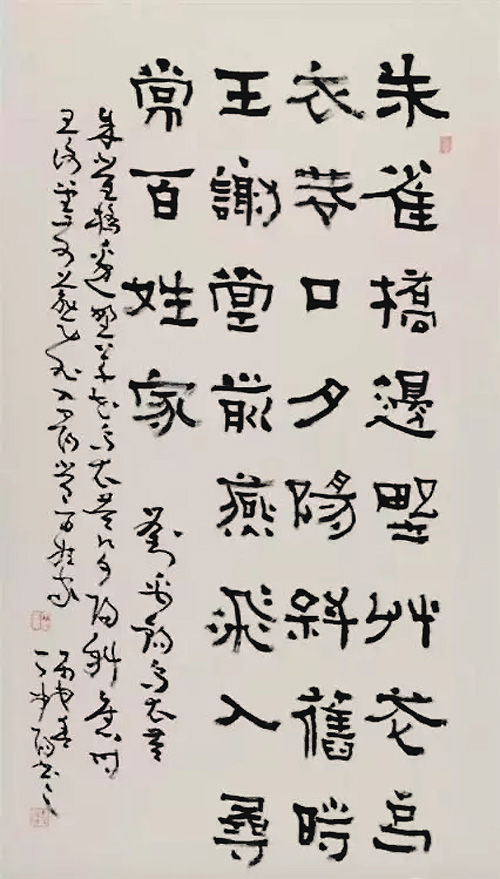 朱雀橋邊野艸花烏
衣巷口夕陽斜舊時
王謝堂前燕飛入尋
常百姓家
劉禹錫烏衣巷
朱雀橋邊野草花烏衣巷口夕陽斜舊時
王謝堂前燕飛入尋常百姓家
丙申春